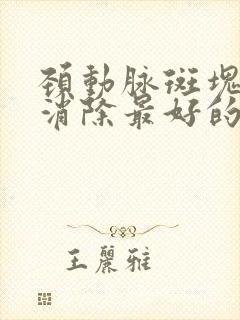 頚動脉斑塊
消除最好的
王麗雅